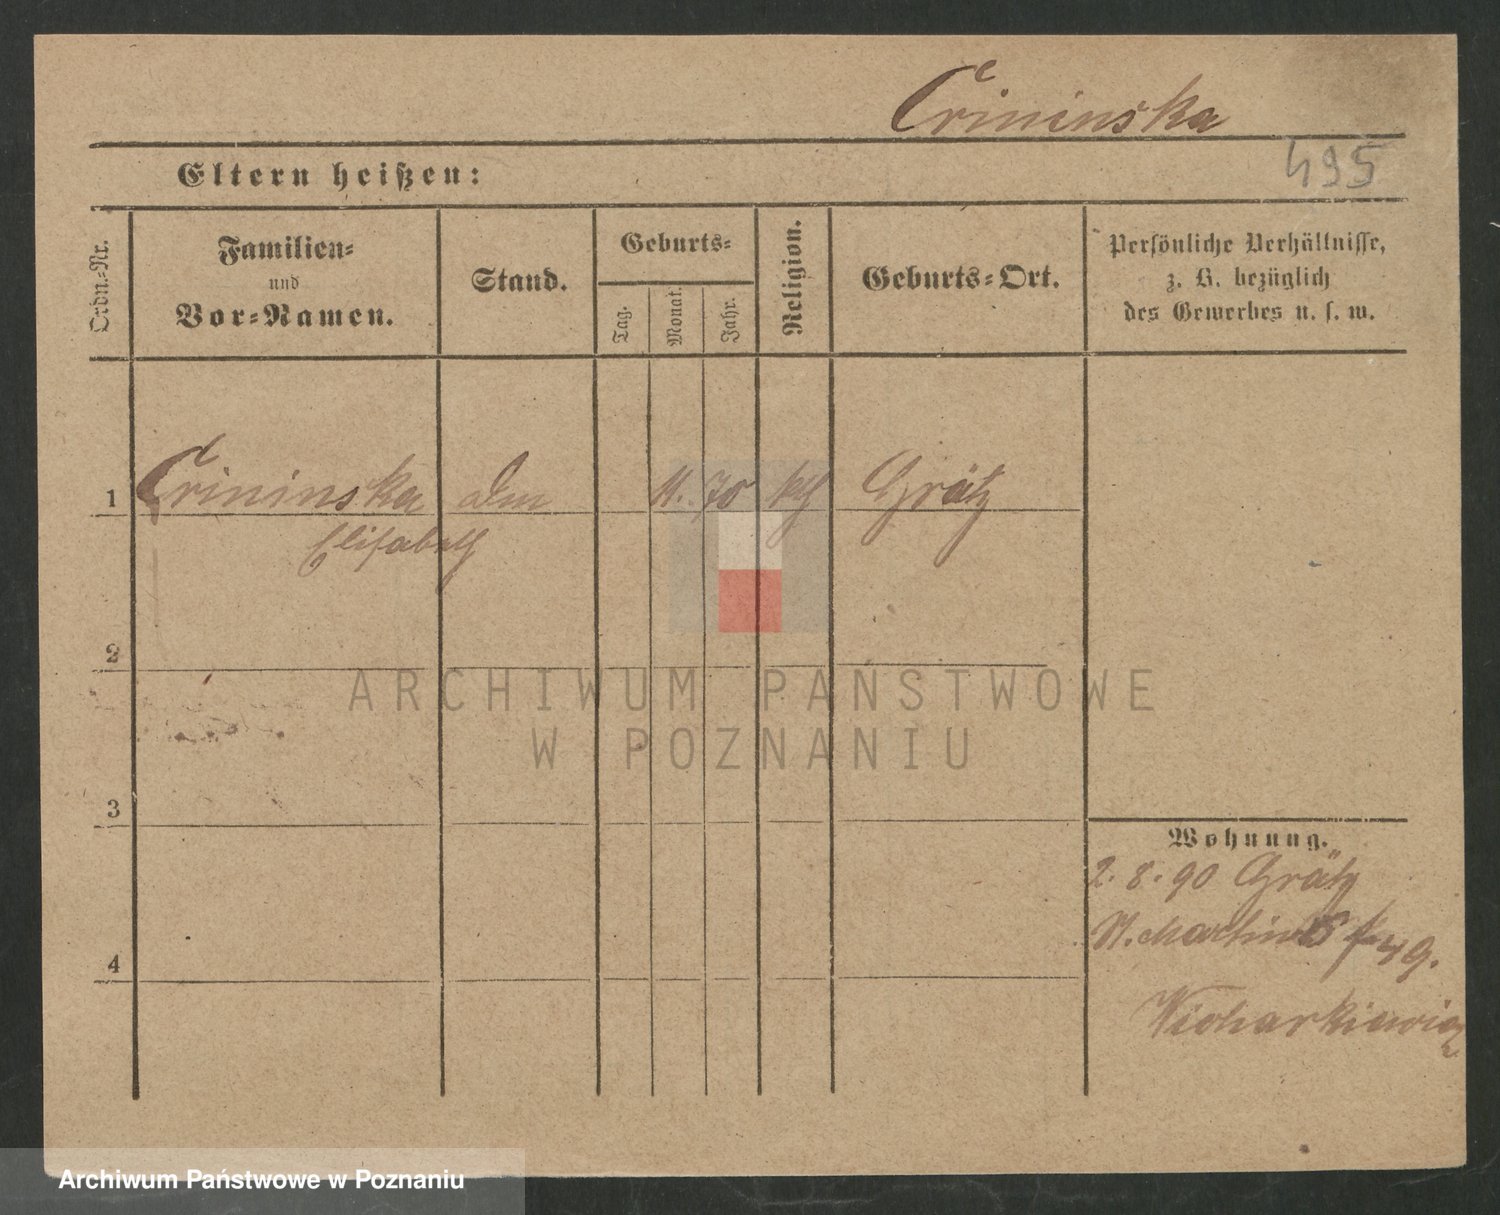 Crininska
495
Eltern heißen:
Ordn.-Nr.
Familien-
und
Vor-Namen.
Stand.
Geburts-
Tag.
Monat.
Jahr.
Religion.
Geburts-Ort.
Persönliche Verhältnisse,
z. B. bezüglich
des Gewerbes u. s. w.
1 Crininska 11. 70 kth Grätz
Elisabeth
2
ARCHIWUM PAŃSTWOWE
W POZNANIU
3
Wohnung.
2. 8. 90 Grätz
St. Martin 49.
4
Archiwum Państwowe w Poznaniu